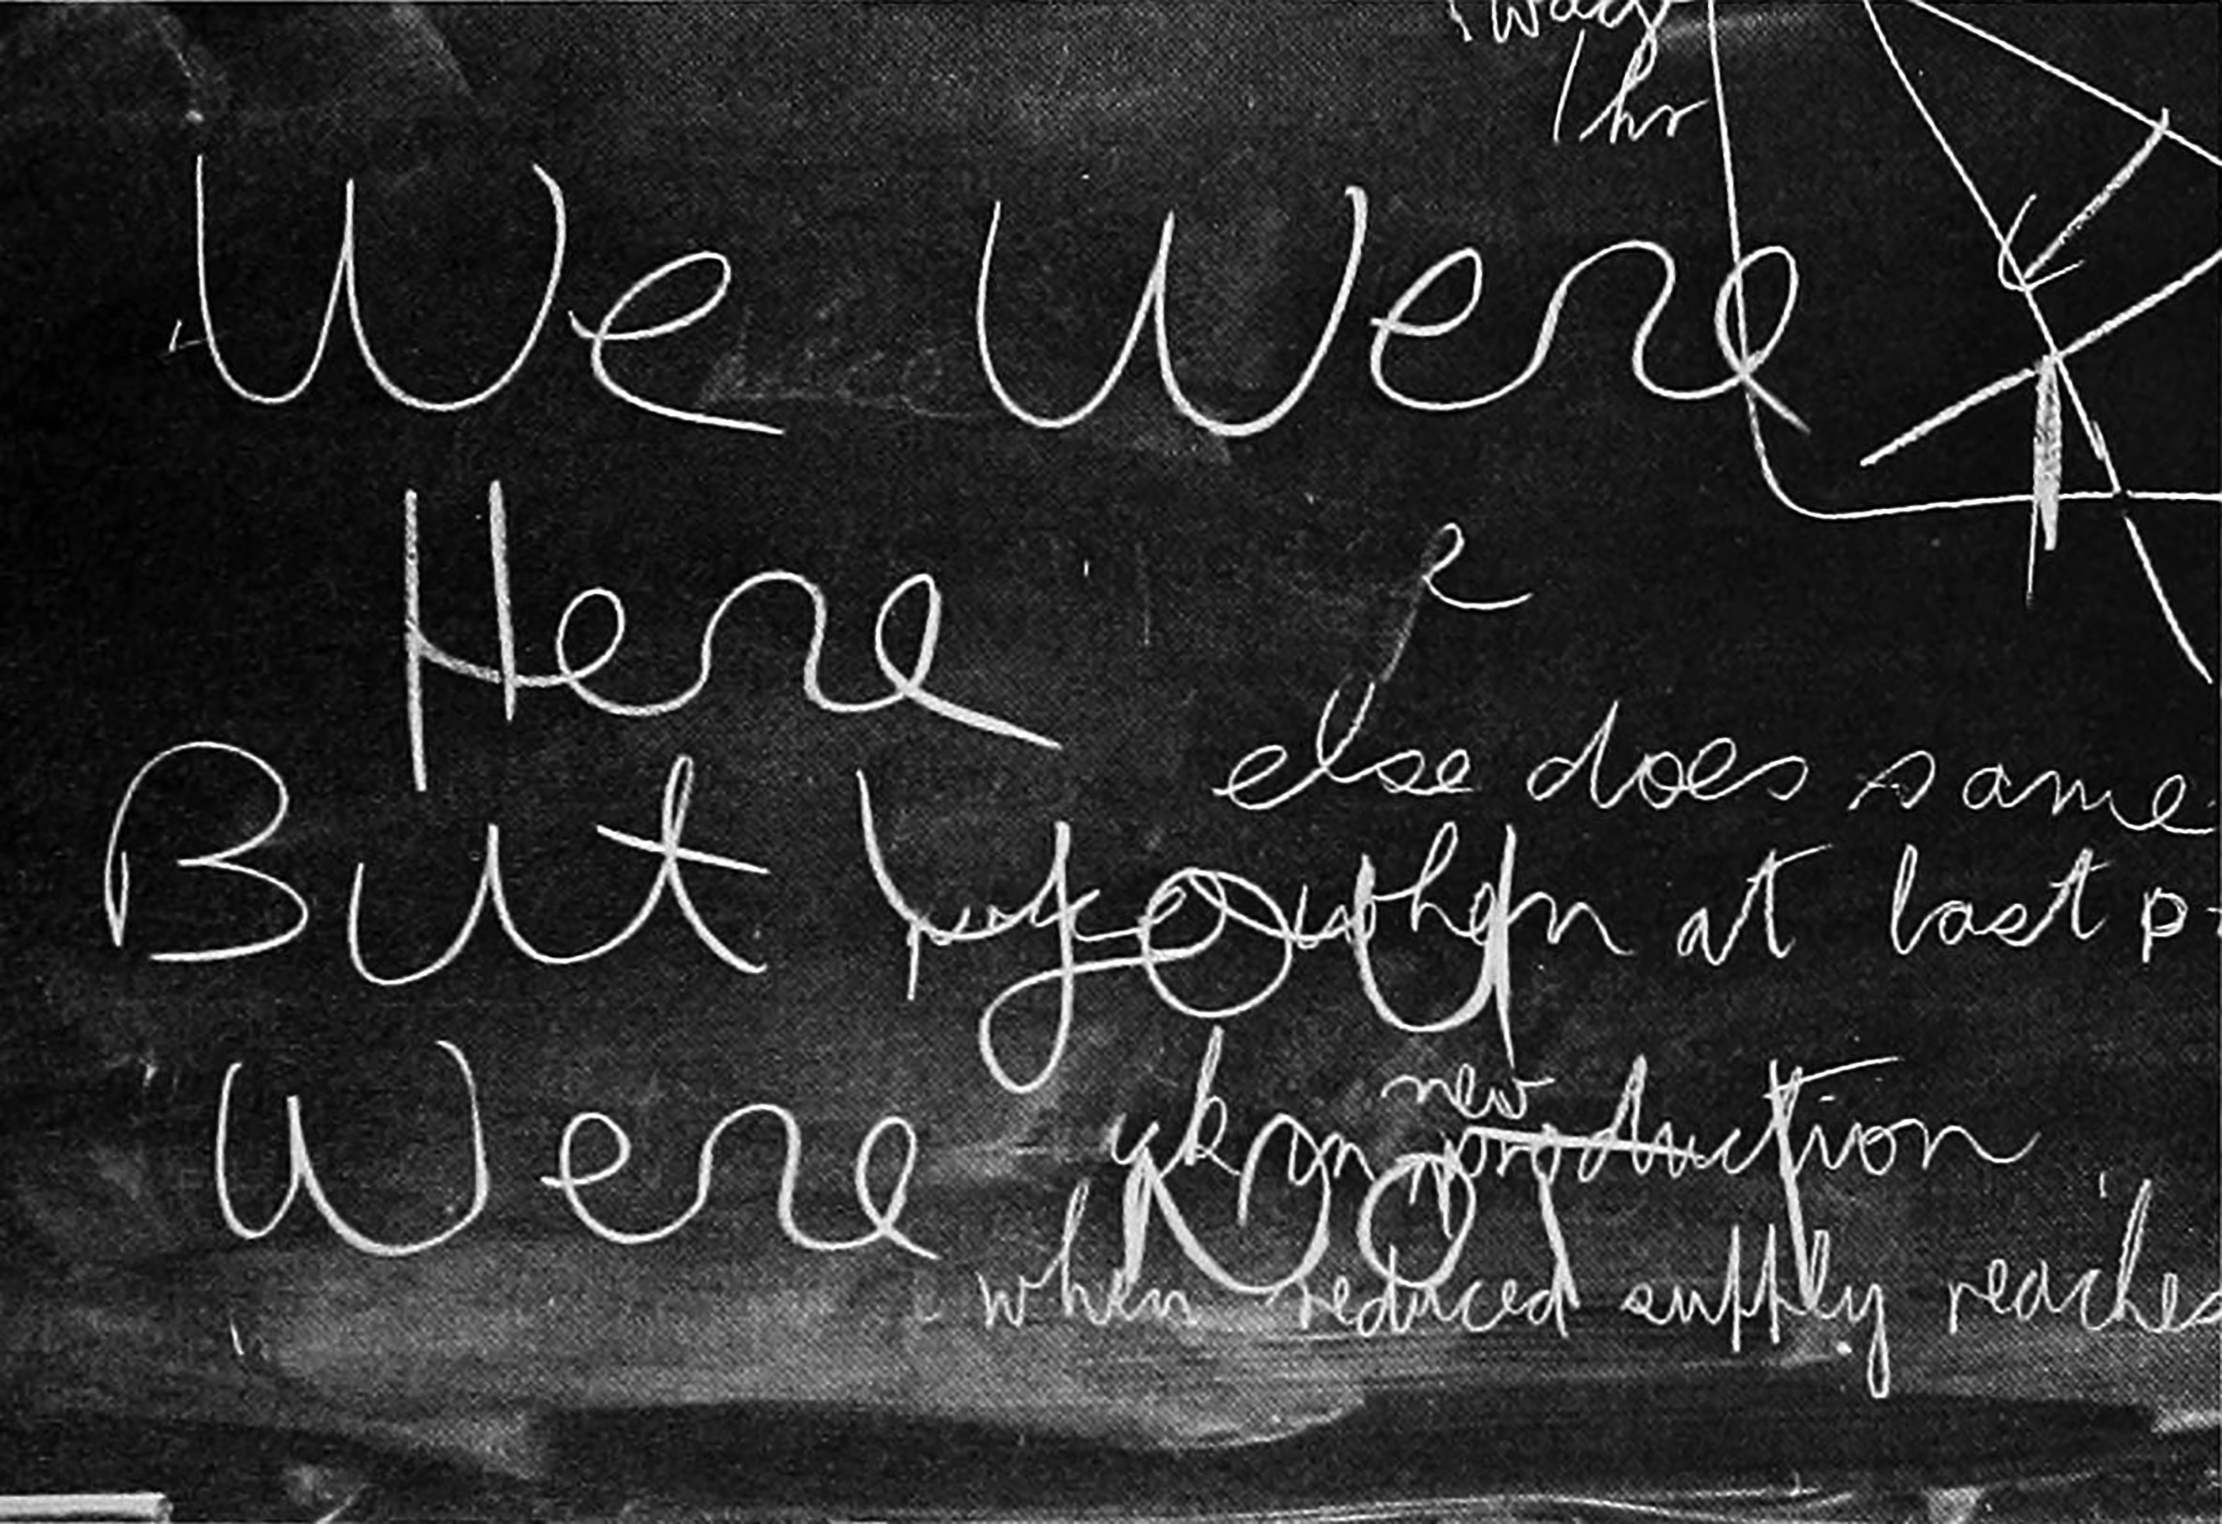 1 way
1 hr
We Were
Here
else does same
But You
when at last
new
Were Not
on production
when reduced supply reaches